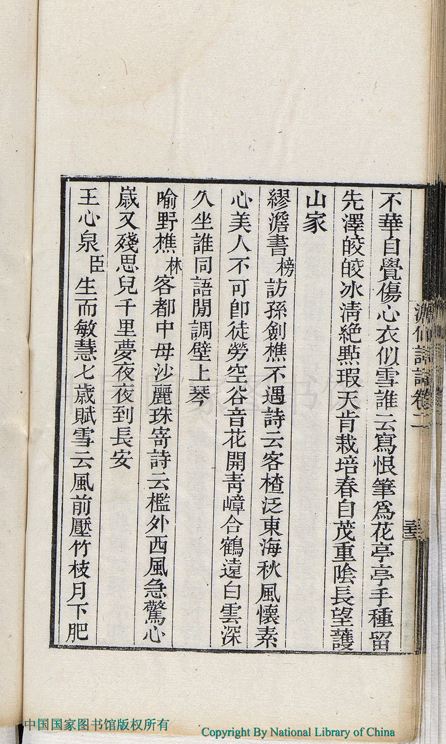 不華自覺傷心衣似雪誰云寫恨筆爲花亭亭手種留
先澤皎皎冰淸絶點瑕天肯栽培春自茂重陰長望護
山家
繆澹書榜訪孫劍樵不遇詩云客楂泛東海秋風懷素
心美人不可卽徒勞空谷音花開靑嶂合鶴遠白雲深
久坐誰同語閒調壁上琴
喻野樵林客都中母沙麗珠寄詩云檻外西風急驚心
嵗又殘思兒千里夢夜夜到長安
王心泉臣生而敏慧七歳賦雪云風前壓竹枝月下肥
詩話卷二
中国国家图书馆版权所有
Copyright By National Library of China